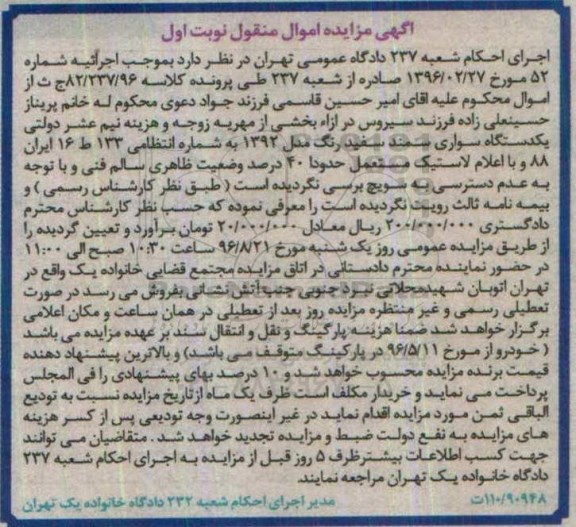 آگهی مزایده اموال منقول نوبت اول
اجرای احکام شعبه ۲۳۷ دادگاه عمومی تهران در نظر دارد بموجب اجرائیه شماره
۵۲ مورخ ۱۳۹۶/۰۲/۲۷ صادره از شعبه ۲۳۷ طی پرونده کلاسه ۸۲/۲۳۷/۹۶ج ث از
اموال محکوم علیه اقای امیر حسین قاسمی فرزند جواد دعوی محکوم له خانم پریناز
حسینعلی زاده فرزند سیروس در ازاء بخشی از مهریه زوجه و هزینه نیم عشر دولتی
یکدستگاه سواری سمند سفید رنگ مدل ۱۳۹۲ به شماره انتظامی ۱۳۳ ط ۱۶ ایران
۸۸ و با اعلام لاستیک مستعمل حدودا ۴۰ درصد وضعیت ظاهری سالم فنی و با توجه
به عدم دسترسی به سویچ برسی نگردیده است ( طبق نظر کارشناس رسمی ) و
بیمه نامه ثالث رویت نگردیده است را معرفی نموده که حسب نظر کارشناس محترم
دادگستری ۲۰۰/۰۰۰/۰۰۰ ریال معادل ۲۰/۰۰۰/۰۰۰ تومان برآورد و تعیین گردیده را
از طریق مزایده عمومی روز یک شنبه مورخ ۹۶/۸/۲۱ ساعت ۱۰:۳۰ صبح الی ۱۱:۰۰
در حضور نماینده محترم دادستانی در اتاق مزایده مجتمع قضایی خانواده یک واقع در
تهران اتوبان شهیدمحلاتی نبرد جنوبی جنب آتش نشانی بفروش می رسد در صورت
تعطیلی رسمی و غیر منتظره مزایده روز بعد از تعطیلی در همان ساعت و مکان اعلامی
برگزار خواهد شد ضمنا هزینه پارکینگ و نقل و انتقال سند بر عهده مزایده می باشد
( خودرو از مورخ ۹۶/۵/۱۱ در پارکینگ متوقف می باشد) و بالاترین پیشنهاد دهنده
قیمت برنده مزایده محسوب خواهد شد و ۱۰ درصد بهای پیشنهادی را فی المجلس
پرداخت می نماید و خریدار مکلف است ظرف یک ماه از تاریخ مزایده نسبت به تودیع
الباقی ثمن مورد مزایده اقدام نماید در غیر اینصورت وجه تودیعی پس از کسر هزینه
های مزایده به نفع دولت ضبط و مزایده تجدید خواهد شد . متقاضیان می توانند
جهت کسب اطلاعات بیشتر ظرف ۵ روز قبل از مزایده به اجرای احکام شعبه ۲۳۷
دادگاه خانواده یک تهران مراجعه نمایند.
۱۱۰/۹۰۹۴۸ت مدیر اجرای احکام شعبه ۲۳۲ دادگاه خانواده یک تهران